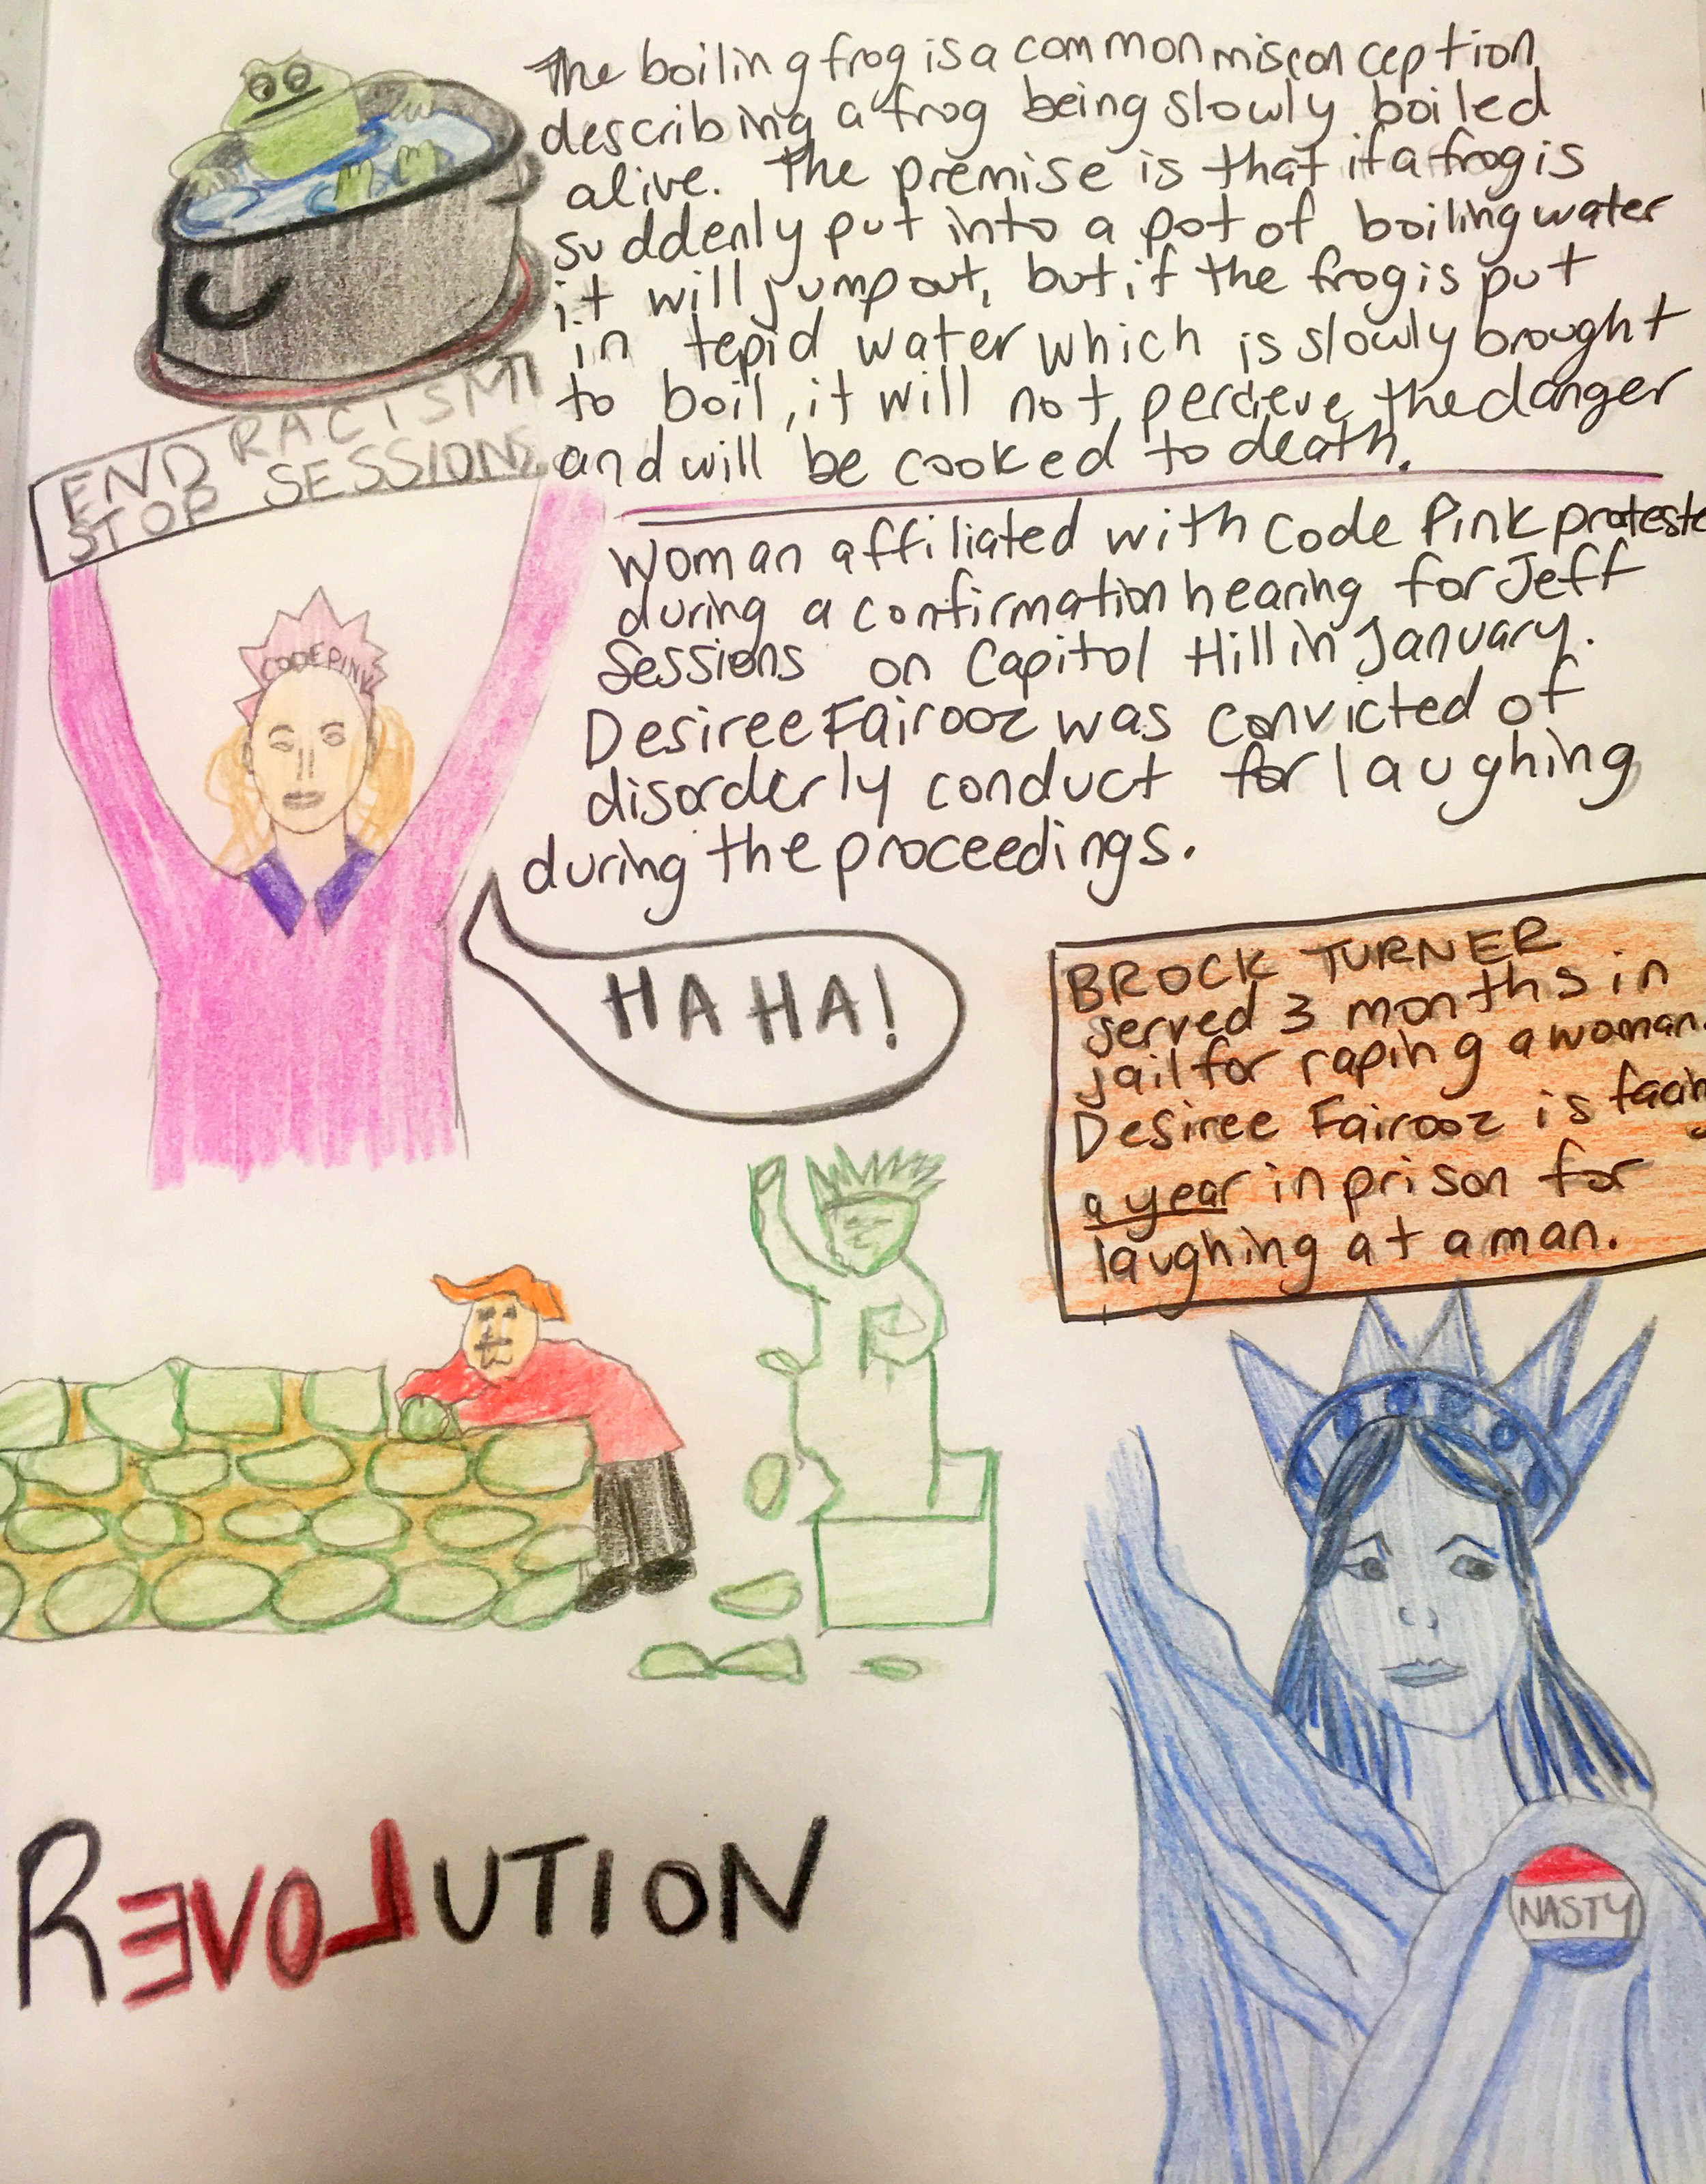 The boiling frog is a common misconception
describing a frog being slowly boiled
alive. The premise is that if a frog is
suddenly put into a pot of boiling water
it will jump out, but if the frog is put
in tepid water which is slowly brought
to boil, it will not percieve the danger
and will be cooked to death.
END RACISM
STOP SESSIONS
Woman affiliated with Code Pink proteste
during a confirmation hearing for Jeff
Sessions on Capitol Hill in January.
Desiree Fairooz was convicted of
disorderly conduct for laughing
during the proceedings.
CODEPINK
HA HA!
BROCK TURNER
served 3 months in
jail for raping a woman.
Desiree Fairooz is facin
a year in prison for
laughing at a man.
REVOLUTION
NASTY